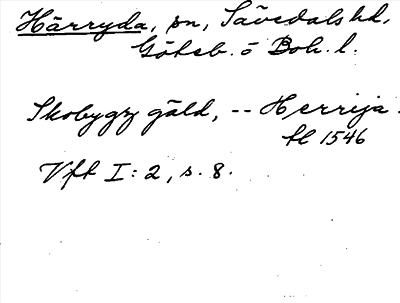 Härryda, sn, Sävedals hd,
Göteb. o Boh. l.
Skobygz gäld, -- Herrija.
tl 1546
Vft I: 2, s. 8.